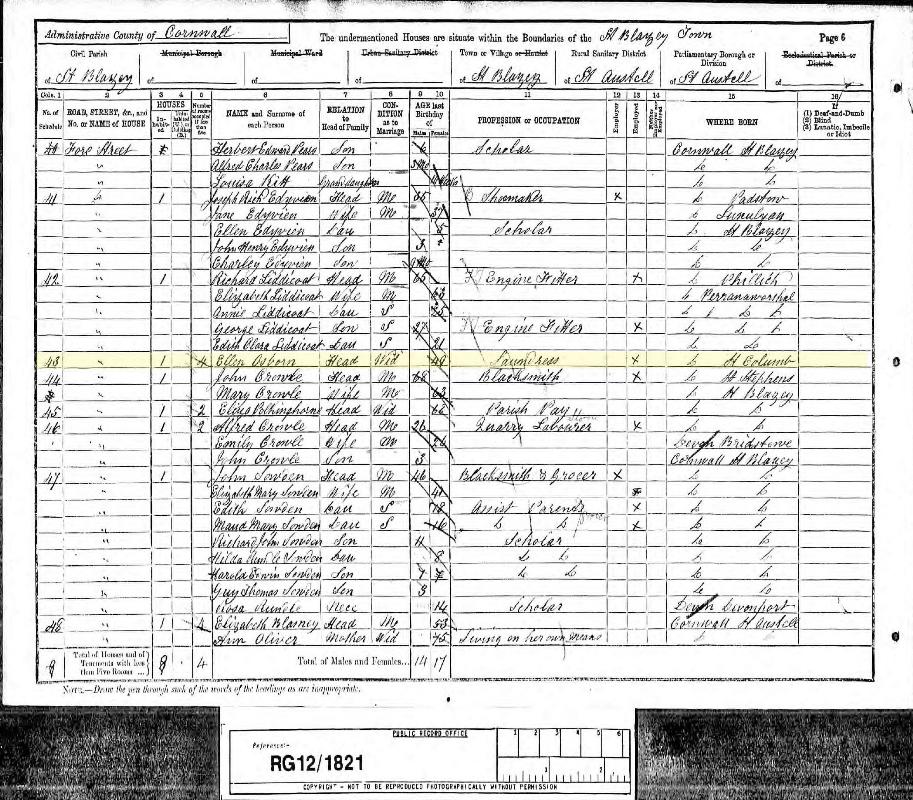 Administrative County of Cornwall The undermentioned Houses are situate within the Boundaries of the St Blazey Town Page 6
Civil Parish Municipal Borough Municipal Ward Urban Sanitary District Town or Village or Hamlet Rural Sanitary District Parliamentary Borough or Division Ecclesiastical Parish or District
of St Blazey of of of of St Blazey of St Austell of St Austell of
Cols. 1 2 3 4 5 6 7 8 9 10 11 12 13 14 15 16
No. of Schedule ROAD, STREET, &c., and No. or NAME of HOUSE HOUSES NAME and Surname of each Person RELATION to Head of Family CONDITION as to Marriage AGE last Birthday of PROFESSION or OCCUPATION Employer Employed WHERE BORN If (1) Deaf-and-Dumb (2) Blind (3) Lunatic, Imbecile or Idiot
Males Females
40 Fore Street Herbert Edward Pears Son 6 Scholar Cornwall St Blazey
" Alfred Charles Pears Son Do Do
" Louisa Kitt Granddaughter Do Do
41 " 1 Joseph Rich Edyvien Head M 35 Shoemaker X Do Padstow
" Jane Edyvien Wife M 37 Do Luxulyan
" Ellen Edyvien Dau 5 Scholar Do St Blazey
" John Henry Edyvien Son 3 Do Do
" Charley Edyvien Son Do Do
42 " 1 Richard Liddicoat Head M 65 Engine Fitter X Do Phillich
" Elizabeth Liddicoat Wife M 63 Do Perranaworthal
" Annie Liddicoat Dau S 25 Do Do
" George Liddicoat Son S 27 Engine Fitter X Do Do
" Edith Clara Liddicoat Dau S 21 Do Do
43 " 1 4 Ellen Osborn Head Wid 49 Laundress X Do St Columb
44 " 1 John Crowle Head M 68 Blacksmith X Do St Stephens
" Mary Crowle Wife M 63 Do St Blazey
45 " 1 2 Head Wid 66 Parish Pay Do Do
46 " 1 2 Alfred Crowle Head M 26 Quarry Labourer X Do Do
" Emily Crowle Wife M 24 Devon Bridstowe
" John Crowle Son 3 Cornwall St Blazey
47 " 1 John Sowden Head M 46 Blacksmith & Grocer X Do Do
" Elizabeth Mary Sowden Wife M 41 Do Do
" Edith Sowden Dau S 18 Assist Parents X Do Do
" Maud Mary Sowden Dau S 16 Do Do X Do Do
" Richard John Sowden Son 11 Scholar Do Do
" Hilda Rundle Sowden Dau 8 Do Do Do Do
" Harold Erwin Sowden Son 7 Do Do Do Do
" Guy Thomas Sowden Son 3 Do Do
" Rosa Rundle Niece 14 Scholar Devon Devonport
48 " 1 4 Elizabeth Blasney Head M 53 Cornwall St Austell
" Ann Oliver Mother Wid 75 Living on her own means Do Do
8 Total of Houses and of Tenements with less than Five Rooms ... 8 4 Total of Males and Females... 14 17
NOTE.—Draw the pen through such of the words of the headings as are inappropriate.
PUBLIC RECORD OFFICE
Reference:-
RG12/1821
1 2 3 4 5 6
1 2
COPYRIGHT - NOT TO BE REPRODUCED PHOTOGRAPHICALLY WITHOUT PERMISSION